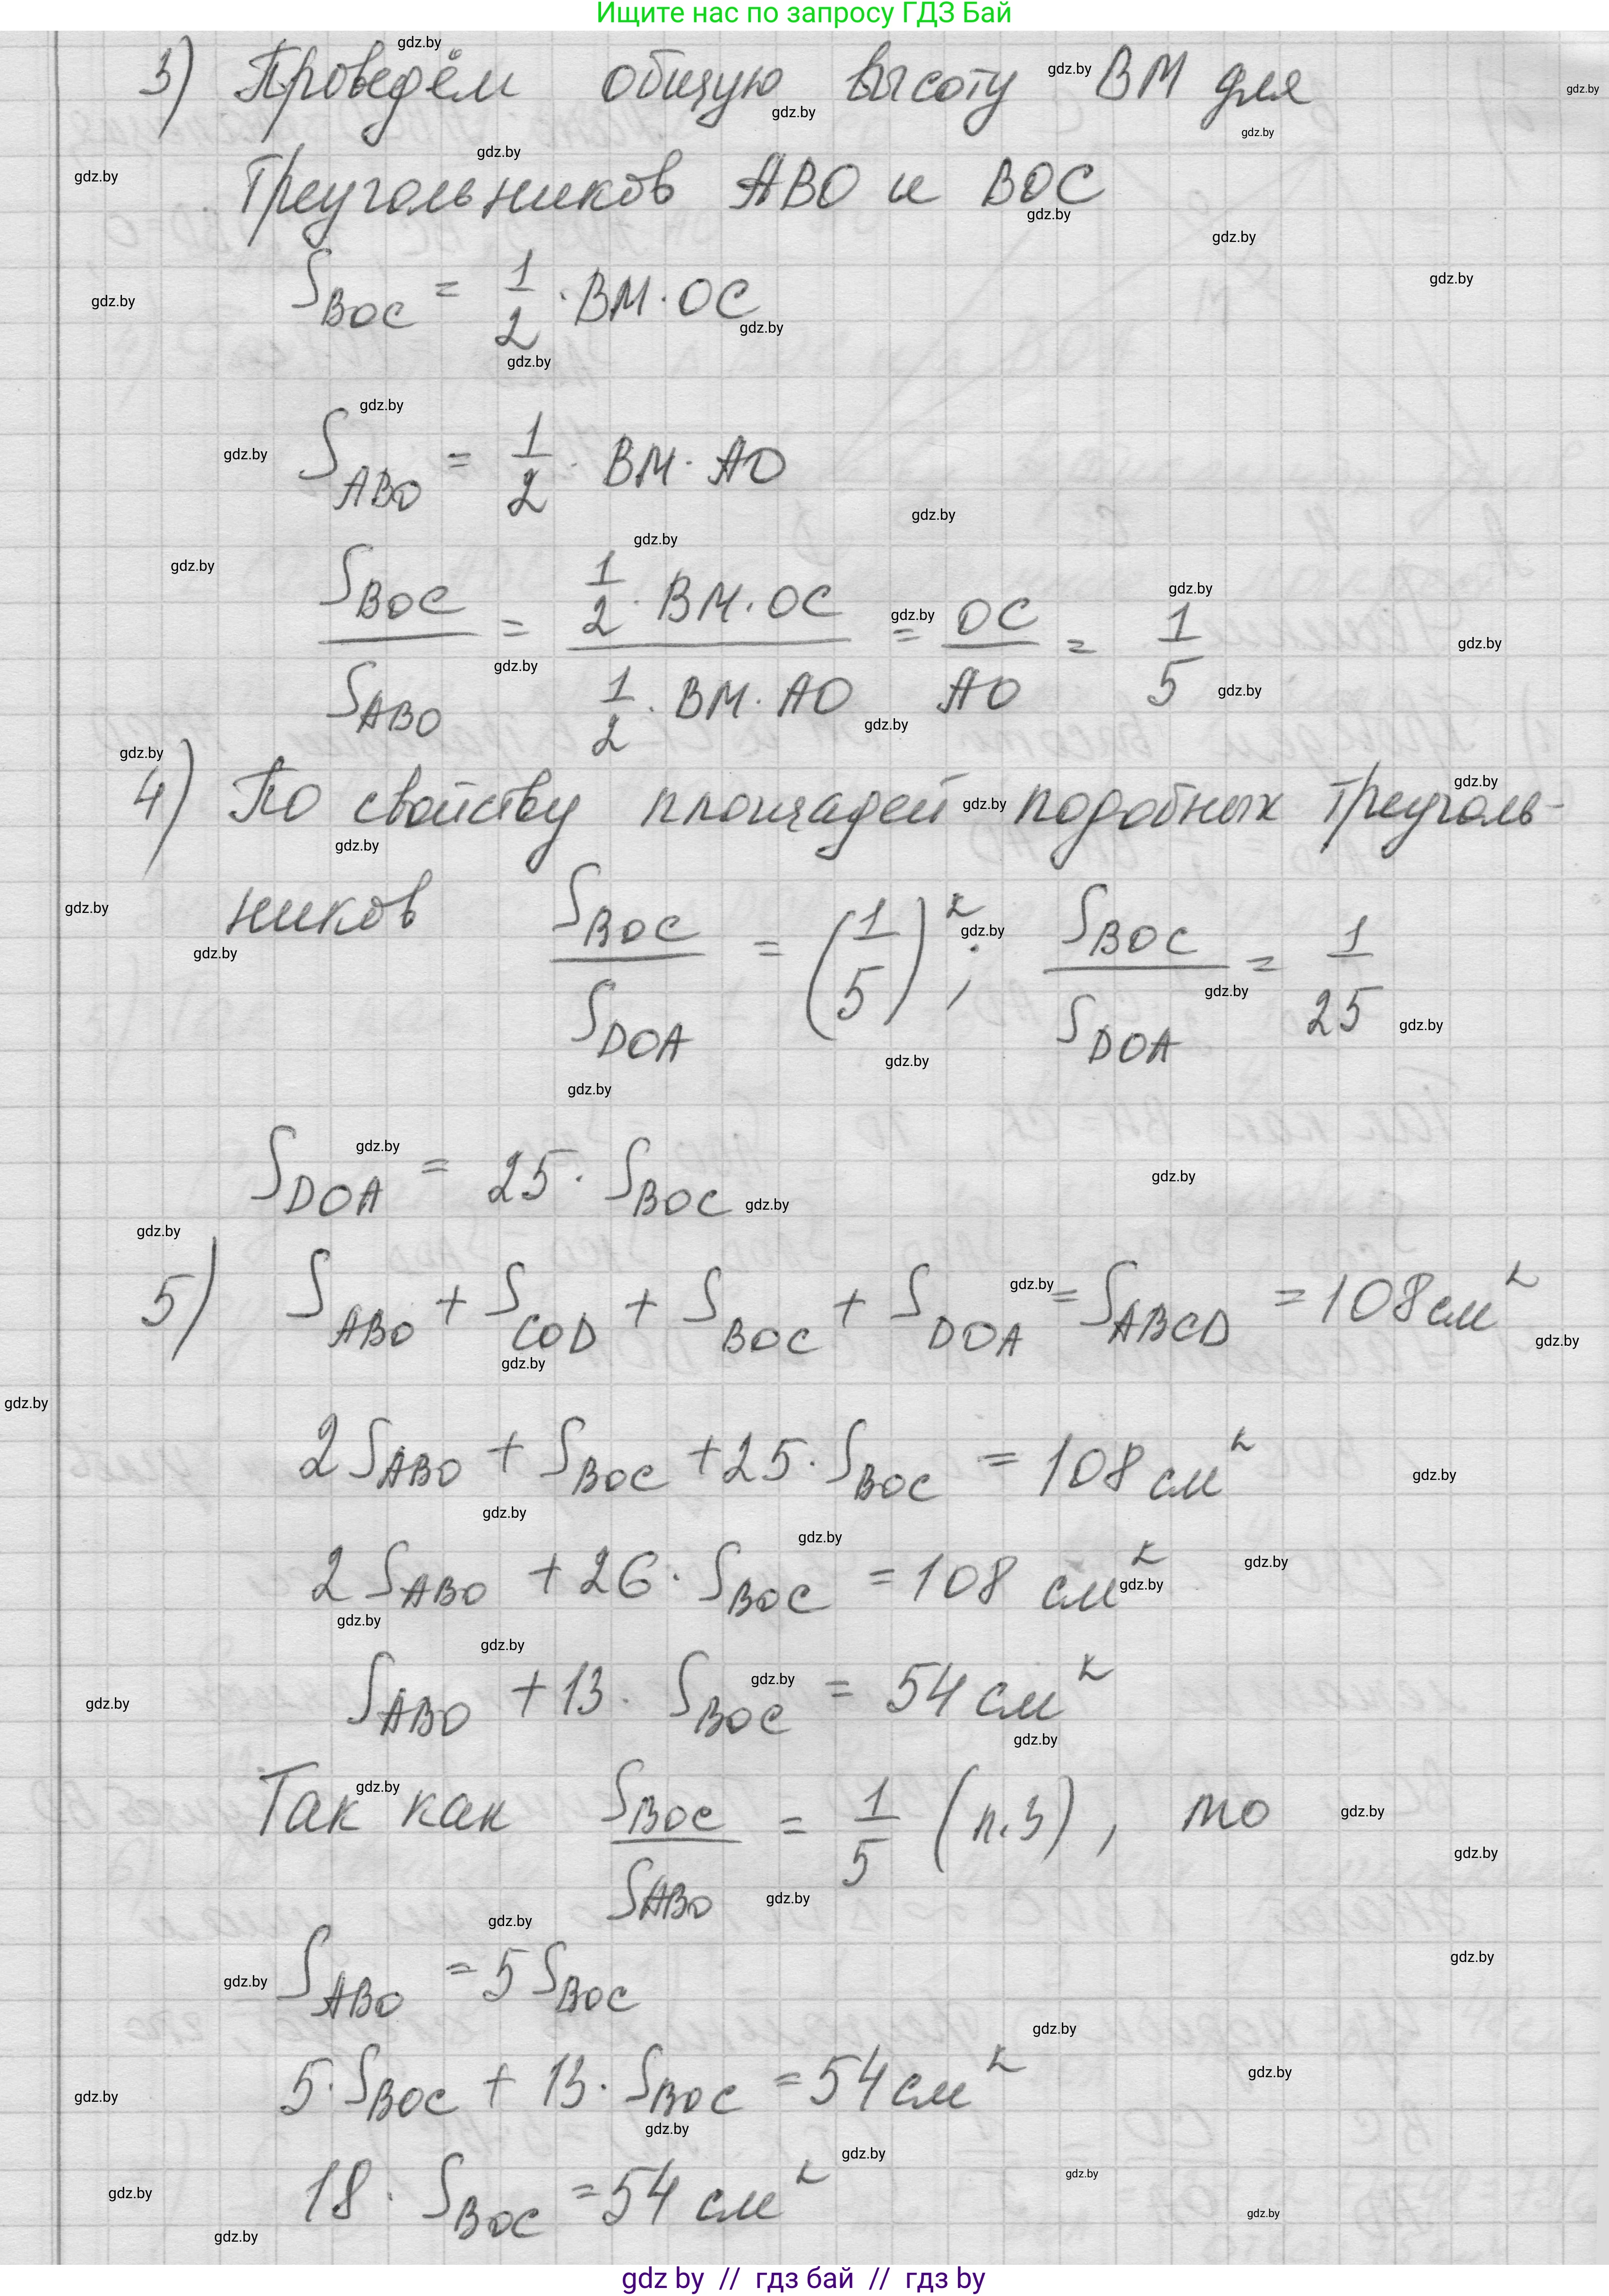 Ищите нас по запросу ГДЗ Бай
3) Проведём общую высоту BM для
треугольников ABO и BOC
S_BOC = 1/2 · BM · OC
S_ABO = 1/2 · BM · AO
S_BOC / S_ABO = (1/2 · BM · OC) / (1/2 · BM · AO) = OC / AO = 1/5
4) По свойству площадей подобных треуголь-
ников S_BOC / S_DOA = (1/5)²; S_BOC / S_DOA = 1/25
S_DOA = 25 · S_BOC
5) S_ABO + S_COD + S_BOC + S_DOA = S_ABCD = 108 см²
2 S_ABO + S_BOC + 25 · S_BOC = 108 см²
2 S_ABO + 26 · S_BOC = 108 см²
S_ABO + 13 · S_BOC = 54 см²
Так как S_BOC / S_ABO = 1/5 (п.3), то
S_ABO = 5 S_BOC
5 · S_BOC + 13 · S_BOC = 54 см²
18 · S_BOC = 54 см²
gdz by // гдз бай // гдз by